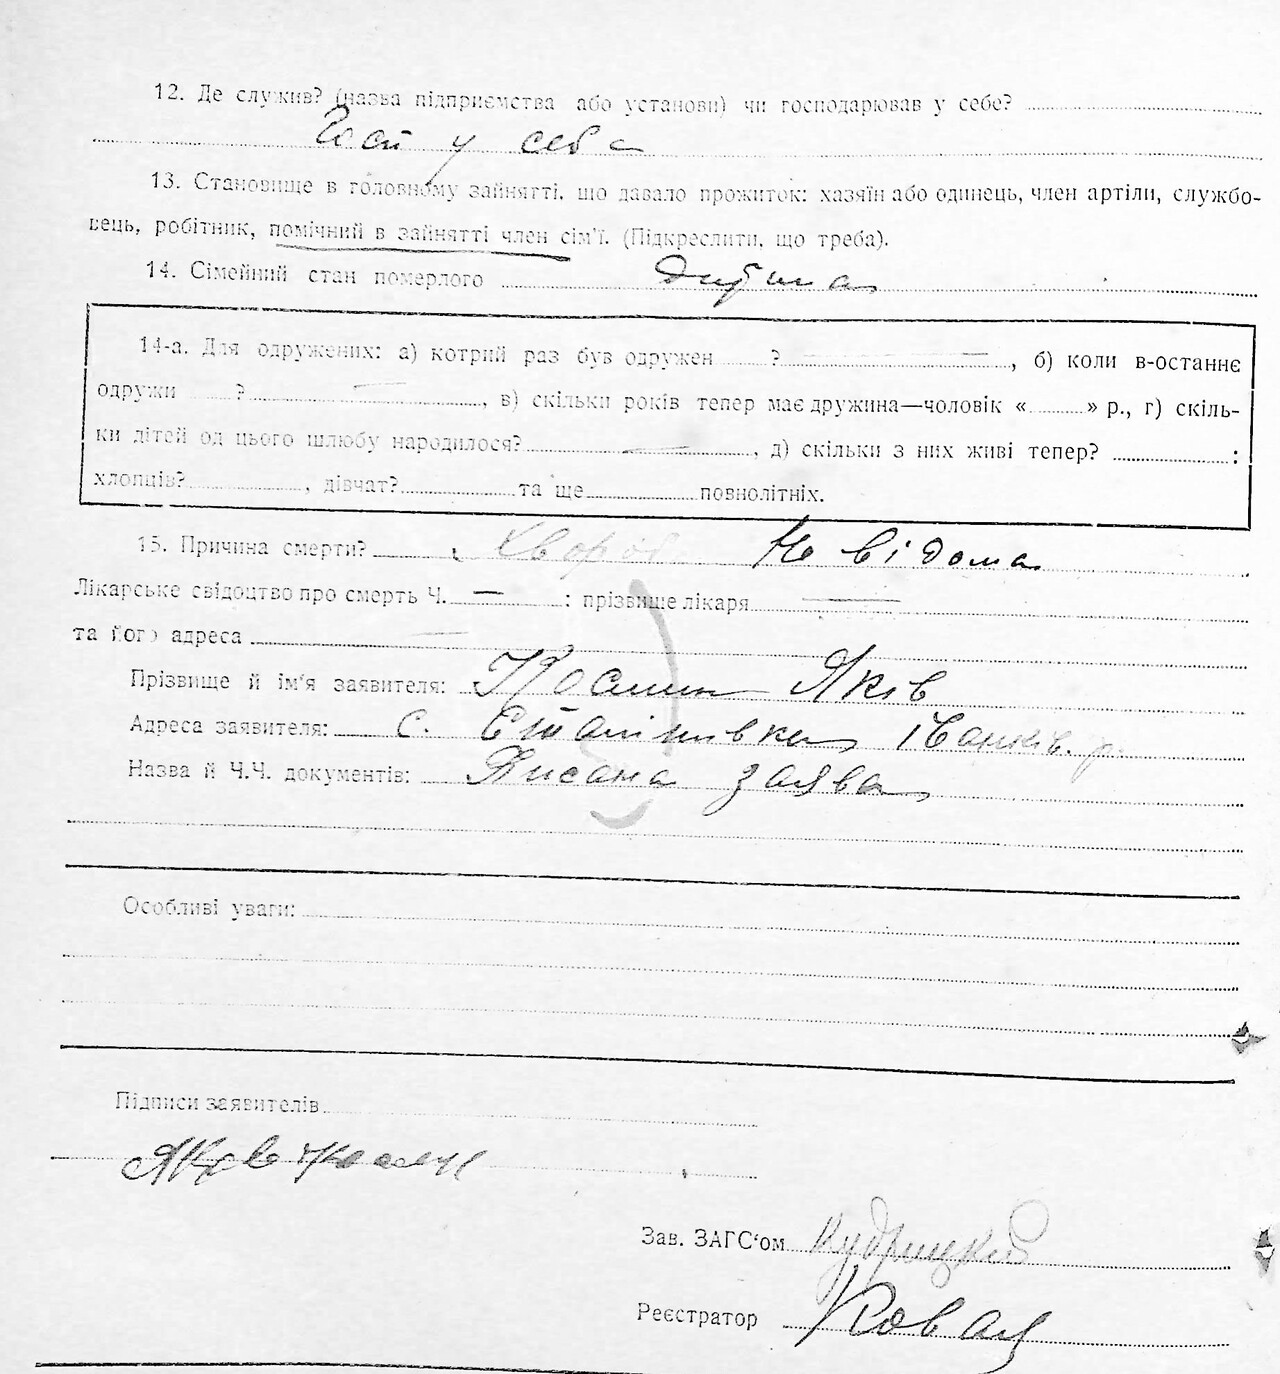 12. Де служив? (назва підприємства або установи) чи господарював у себе?
Госп у себе
13. Становище в головному зайнятті, що давало прожиток: хазяїн або одинець, член артіли, службо-
вець, робітник, помічний в зайнятті член сім'ї. (Підкреслити, що треба).
14. Сімейний стан померлого дитина
14-а. Для одружених: а) котрий раз був одружен ? —, б) коли в-останнє
одружи ? —, в) скільки років тепер має дружина—чоловік « » р., г) скіль-
ки дітей од цього шлюбу народилося? —, д) скільки з них живі тепер? :
хлопців? , дівчат? та ще повнолітніх.
15. Причина смерти? Хвороба Не відома
Лікарське свідоцтво про смерть Ч. — : прізвище лікаря —
та його адреса —
Прізвище й ім'я заявителя: Яків
Адреса заявителя: с. Іванків. р.
Назва й Ч.Ч. документів: Писана заява
Особливі уваги:
Підписи заявителів
Яків
Зав. ЗАГС'ом Кудрицкий
Реєстратор Ковал